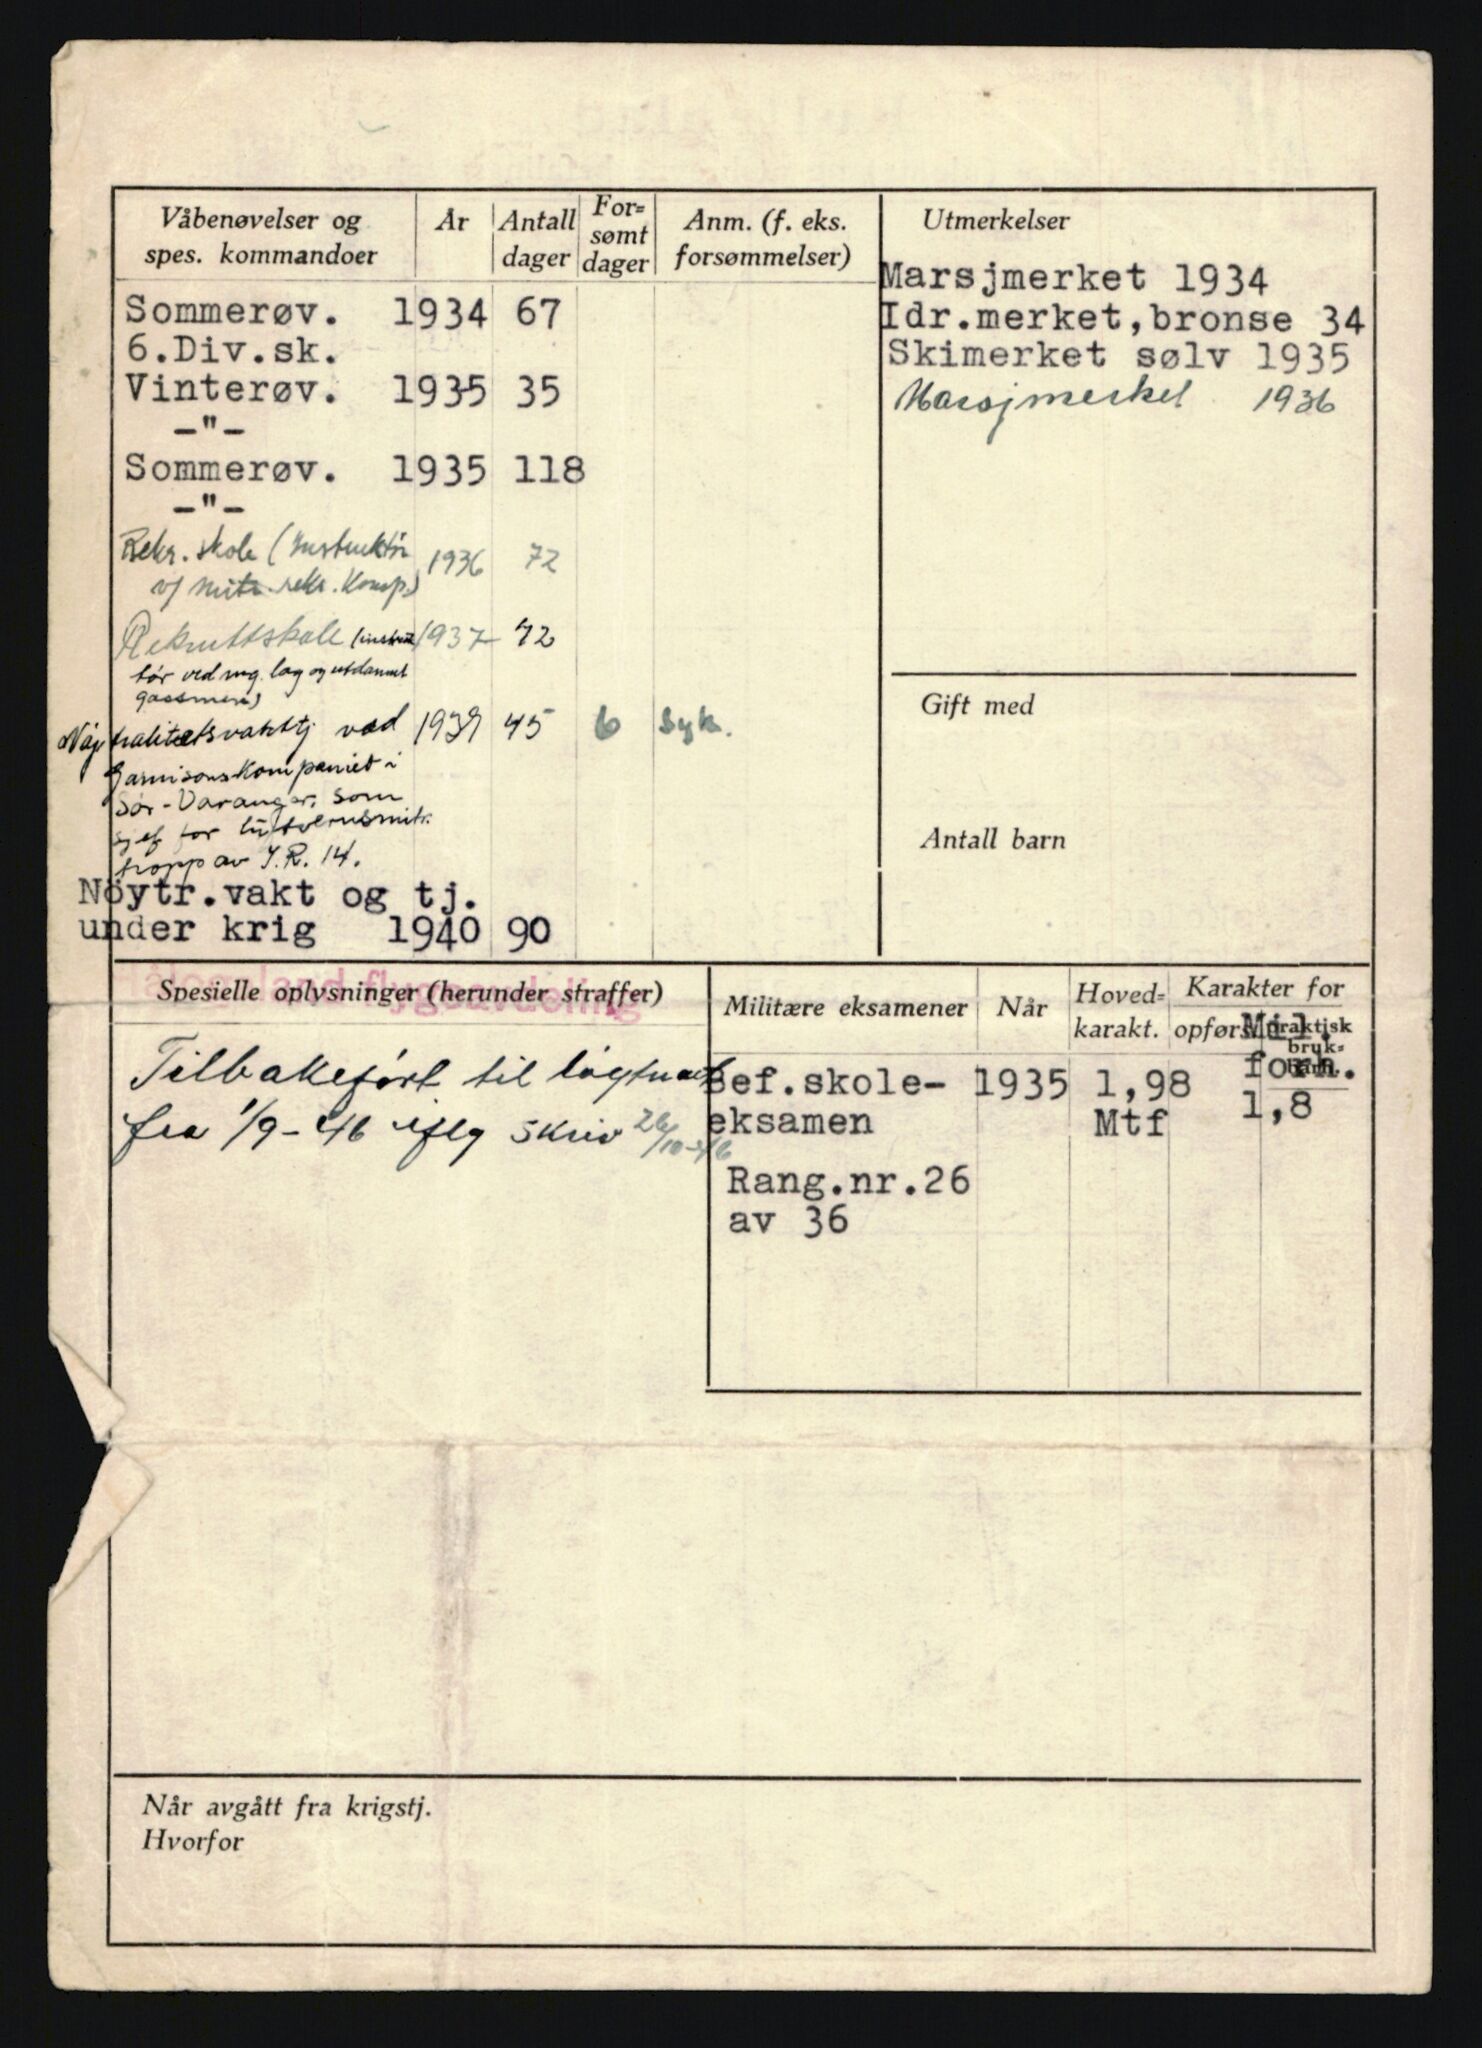 Våbenøvelser og
spes. kommandoer
År
Antall
dager
For=
sømt
dager
Anm. (f. eks.
forsømmelser)
Utmerkelser
Sommerøv. 1934 67
6.Div.sk.
Vinterøv. 1935 35
-"-
Sommerøv. 1935 118
-"-
Rekr. skole (Instruktør 1936 72
v/ mitr. rekr. komp.)
Rekruttskole (instruk 1937 72
tør ved mg. lag og utdannet
gassmann)
Nøytralitetsvakttj ved 1939 45 6 syk.
Garnisonskompaniet i
Sør-Varanger, som
sjef for luftvernsmitr.
tropp av I.R. 14.
Nöytr.vakt og tj.
under krig 1940 90
Marsjmerket 1934
Idr.merket, bronse 34
Skimerket sølv 1935
Marsjmerket 1936
Gift med
Antall barn
Hålogaland flygeavdeling
Spesielle oplysninger (herunder straffer)
Tilbakeført til løgtnant
fra 1/9-46 iflg skriv 26/10-46
Militære eksamener
Når
Hoved=
karakt.
Karakter for
opførs
praktisk
bruk=
barh.
Mil.
forh.
Bef.skole- 1935 1,98 1,8
eksamen Mtf
Rang.nr.26
av 36
Når avgått fra krigstj.
Hvorfor